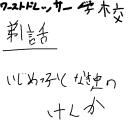 ワーストドレッサー学校
第1話
いじめっ子となき虫の
けんか